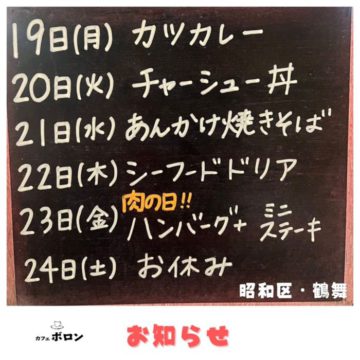 19日(月) カツカレー
20日(火) チャーシュー丼
21日(水) あんかけ焼きそば
22日(木) シーフードドリア
肉の日!!
23日(金) ハンバーグ+ ミニステーキ
24日(土) お休み
昭和区・鶴舞
カフェ ポロン
お知らせ